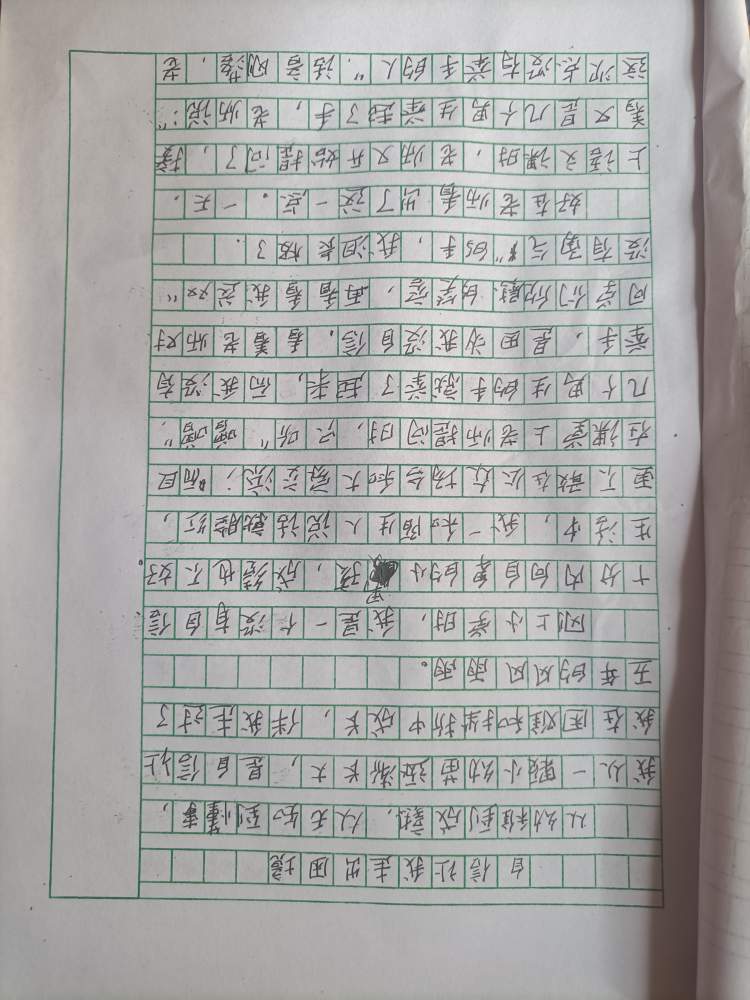 自信让我走出困境
从幼稚到成熟，从无知到懂事，
我从一颗小幼苗逐渐长大，是自信让
我在困难和挫折中成长，伴我走过了
五年的风风雨雨。
刚上小学时，我是一个没有自信
十分内向自卑的小男孩，成绩也不好。
生活中，我一和陌生人说话就脸红，
更不敢在公众场合和大家交流；而且
在课堂上老师提问时，只听“噌噌”，
几个男生的手就举了起来，而我没有
举手，是因为我没自信。看着老师对
同学们欣慰的笑容，再看看我这“双
没有勇气”的手，我沮丧极了.
好在老师看出了这一点。一天.
上语文课时，老师又开始提问了，接
着又是几个男生举起了手，老师说：“
这次点没有举手的人”.话音刚落，老